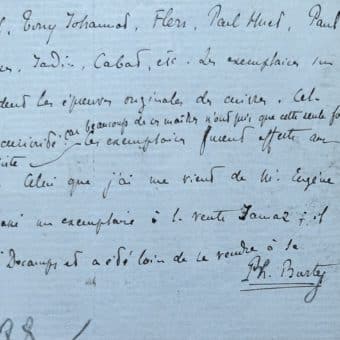 Tony Johannot, Flers, Paul Huet, Paul
Jadin, Cabat, etc. Les exemplaires sur
les épreuves originales de cuivre. Cet
car beaucoup de ces maîtres n'ont que cette seule fo
curiosité. Les exemplaires furent offerts aux
Celui que j'ai me vient de Mr Eugène
un exemplaire à la vente ; il
Decamps et a été loin de se vendre à
Ph. Burty